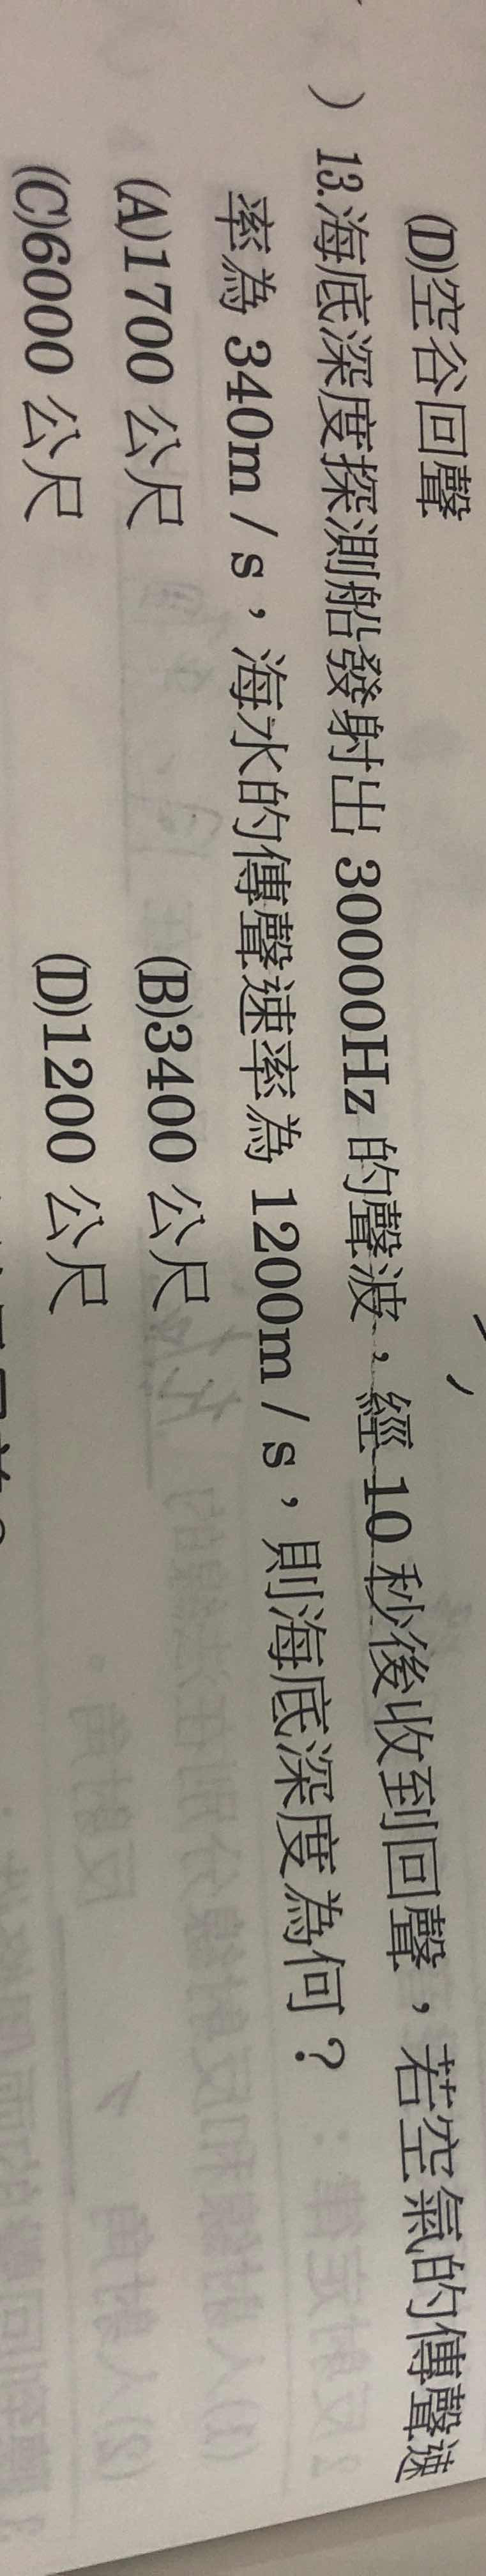 (D)空谷回聲
) 13.海底深度探測船發射出 30000Hz 的聲波，經 10 秒後收到回聲，若空氣的傳聲速
率為 340m / s，海水的傳聲速率為 1200m / s，則海底深度為何？
(A)1700 公尺 (B)3400 公尺
(C)6000 公尺 (D)1200 公尺